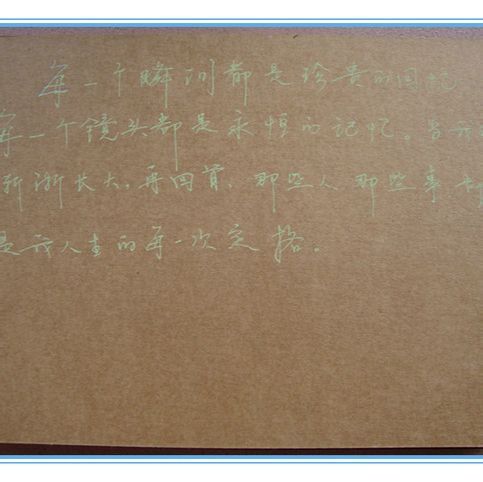 每一个瞬间都是珍贵的回忆
每一个镜头都是永恒的记忆。当我
渐渐长大,再回首,那些人那些事都
是我人生的每一次定格。